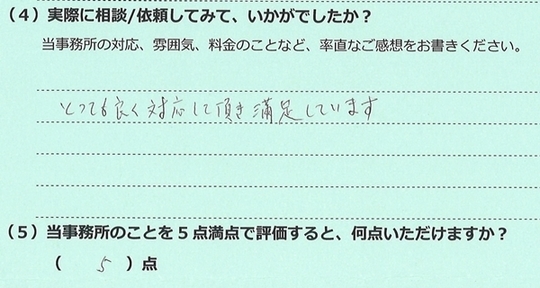 （４）実際に相談/依頼してみて、いかがでしたか？
当事務所の対応、雰囲気、料金のことなど、率直なご感想をお書きください。
とっても良く対応して頂き満足しています
（５）当事務所のことを５点満点で評価すると、何点いただけますか？
（ 5 ）点